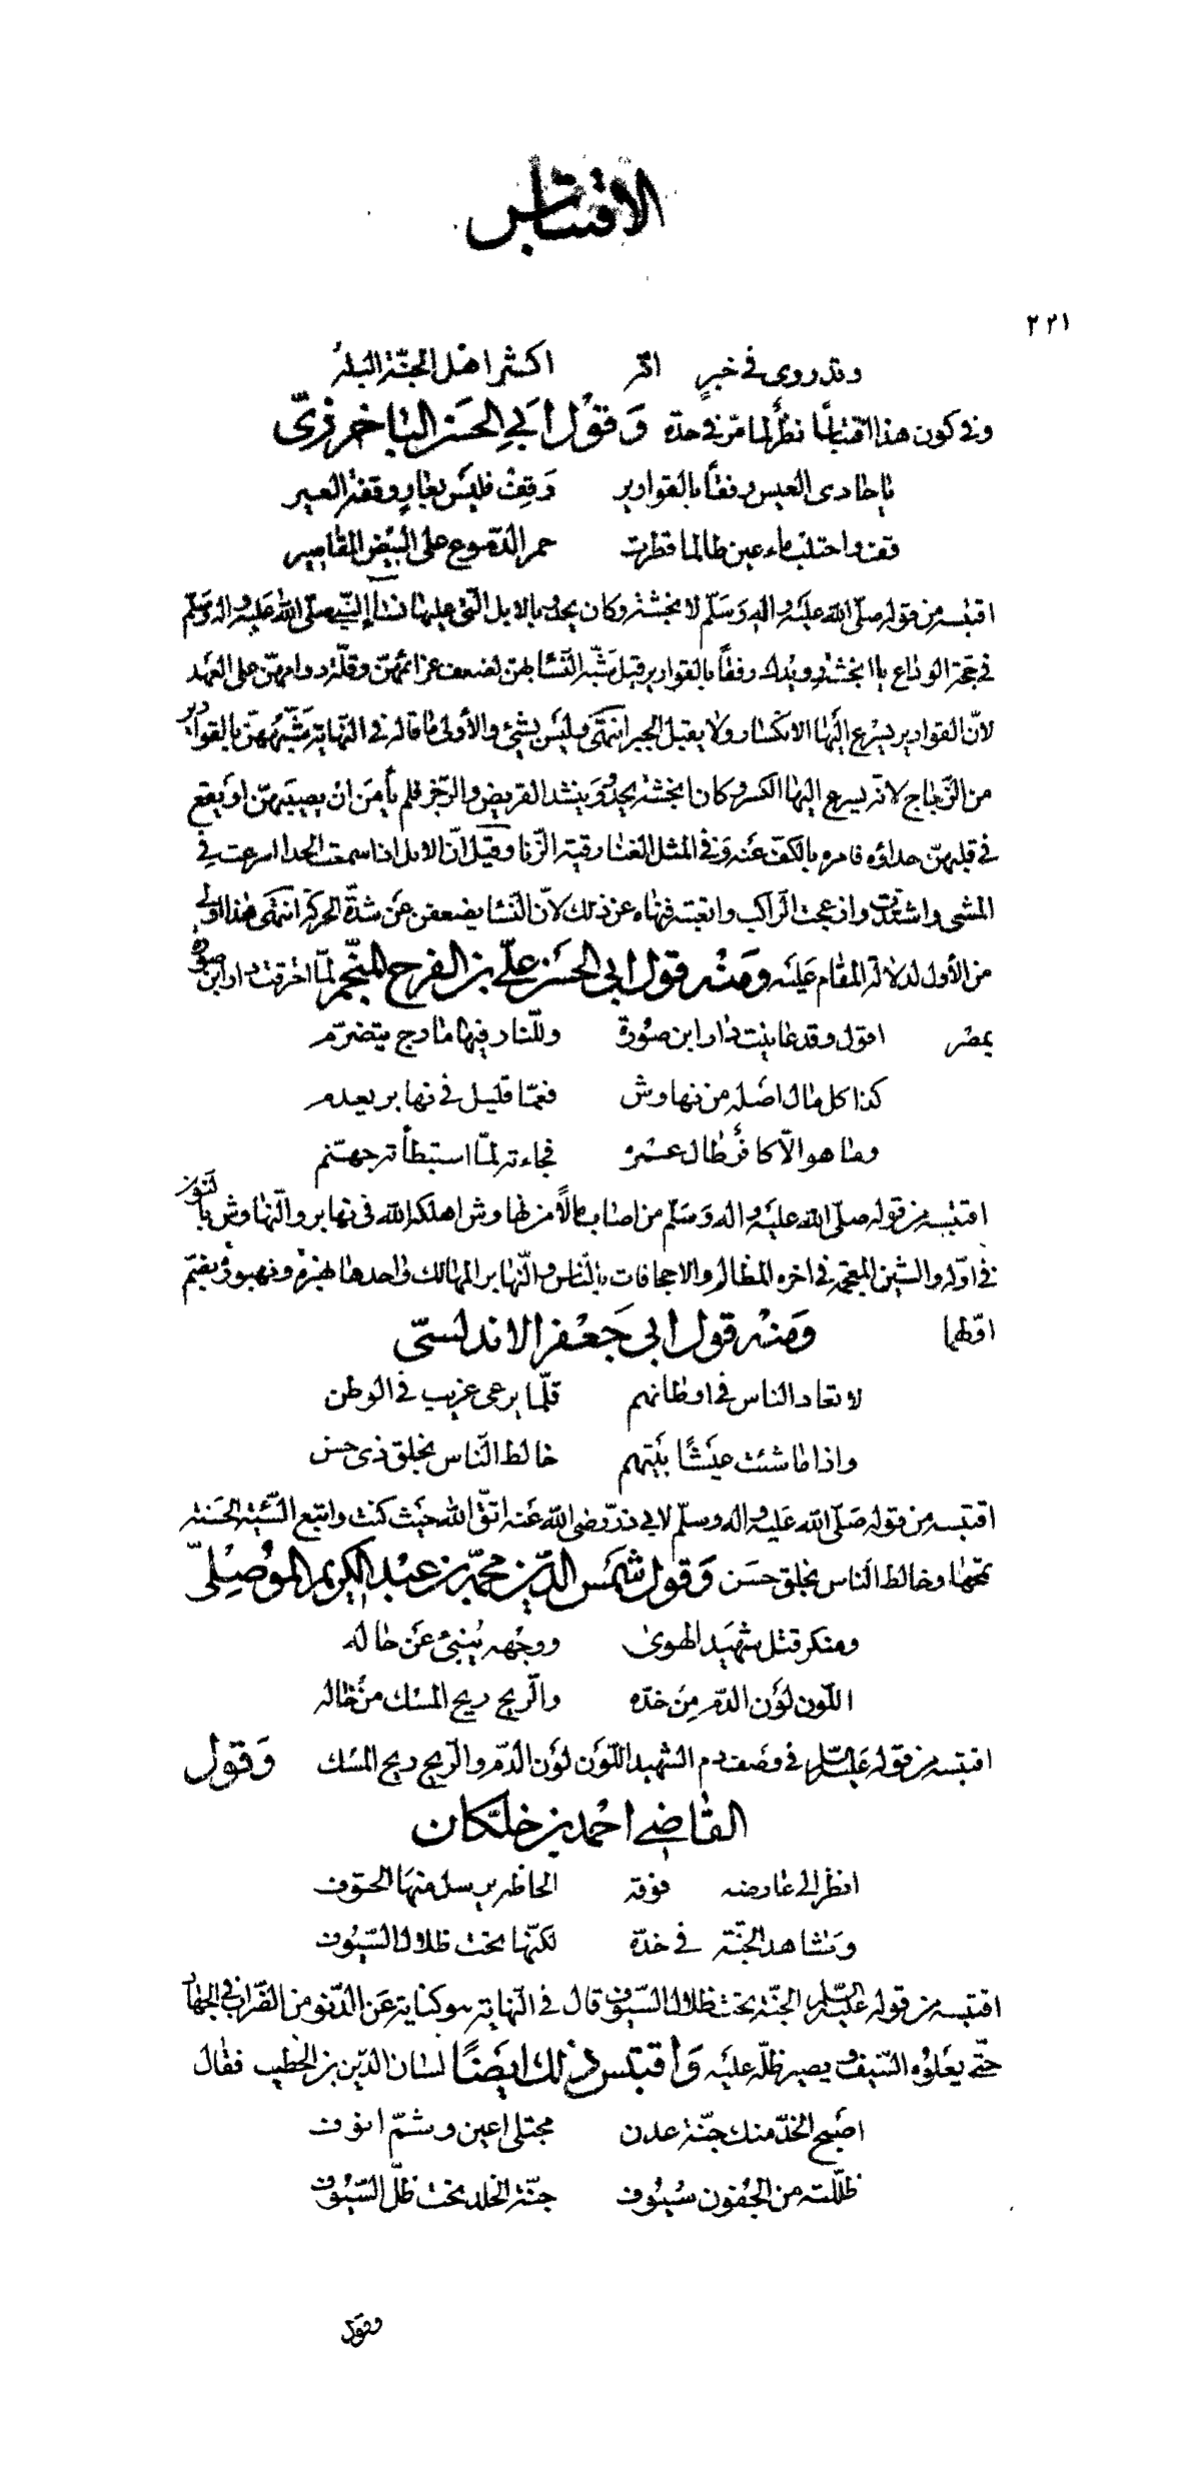 الاقتباس
٢٢١
وقد روى فى خبرٍ انّه اكثر اهل الجنّة البله
وفى كون هذا اقتباسًا نظرٌ لما مرّ فى حدّه وَقَوْل ابَى الحَسَن الباخرزىّ
يا حادى العيس رفقًا بالقوارير وَقِفْ فليس بعارٍ وقفة العير
قف واحتلب ماء عين طالما قطرت حمر الدّموع على البيض المقاصير
اقتبسه من قوله صلّى الله عليه واله وَسَلّم لا نجشة وكان يحدو بالابل الّتى عليها نساء النّبى صلّى الله عليه واله وسلّم
فى حجّة الوداع يا انجشة رويدك رفقًا بالقوارير قيل شبّه النّساء بهنّ لضعف عزائمهنّ وقلّة دوامهنّ على العهد
لانّ القوارير يسرع اليها الانكسار ولا يقبل الجبر انتهى وليس بشئ والأولى ما قاله فى النّهاية شبّههنّ بالقوارير
من الزّجاج لانّه يسرع اليها الكسر وكان انجشة يحدو وينشد القريض والرّجز فلم يأمن ان يصيبهنّ او يقع
فى قلبهنّ حداؤه فامره بالكفّ عنه وفى المثل الغناء رقية الزّنا وقيل انّ الابل اذا سمعت الحداء اسرعت فى
المشى واشتدّت وازعجت الرّاكب واتعبته فنهاه عن ذلك لانّ النّساء يضعفن عن شدّة الحركة انتهى هذا اولى
من الأول لدلالة المقام عليه ومنْه قول ابى الحَسَن علىّ بن الفرج المنجّم لمّا احرقت دار ابن صورة
بمصر اقول وقد عاينت دار ابن صورة وللنّار فيها مارج يتضرّم
كذا كل مال اصله من نهاوش فعمّا قليل فى نهابر يعدم
وما هو الّا كافرٌ طال عمره فجاءته لمّا استبطأته جهنّم
اقتبسه من قوله صلّى الله عليه واله وَسَلّم من اصاب مالًا من نهاوش اهلكه الله فى نهابر والنّهاوش بالنون
فى اوّله والشين المعجمة فى اخره المظالم والاجحافات بالنّاس والنّهابر المهالك واحدها نهبرة ونهبورة بضمّ
اوّلهما ومَنْه قول ابى جَعْفر الاندلسىّ
لا تعاد الناس فى اوطانهم قلّما يرعى غريب فى الوطن
واذا ما شئت عيشًا بينهم خالط النّاس بخلق ذى حسن
اقتبسه من قوله صَلّى الله عَليه واله وسلّم لابى ذرّ رضى الله عنه اتّق الله حيث كنت واتبع السّيّئة الحَسنة
تمحها وخالط الناس بخلق حسَن وَقول شَمْس الدّين محمّد بن عبْد الكريم الموْصِلىّ
ومنكر قتل شهيد الهوى ووجْهه يُنبئ عَن حاله
اللّون لوْن الدّم مِن خدّه والرّيح ريح المسْك من خاله
اقتبسه من قوله عَليْه السّلام فى وصف دم الشهيد اللّوْن لوْن الدّم والرّيح ريح المسْك وَقول
القاضى احْمد بن خلّكان
انظر الى عارضه فوقه الحاظه يرسل منها الحتوف
وتشاهد الجنّة فى خدّه لكنّها تحت ظلال السّيُوف
اقتبسه من قوله عليْه السّلام الجنّة تحت ظلال السّيوف قال فى النّهاية هو كناية عَن الدّنو من الضّراب فى الجهاد
حتّى يعْلوَه السّيف ويصير ظلّه عليْه وَاقتبس ذلك ايضًا لسان الدّين بن الخطيب فقال
اصبح الخدّ منك جنّة عدن مجتلى اعين وشمّ انوف
ظلّلته من الجفون سُيُوف جنّة الخلد تحت ظلّ السّيُوف
وقول